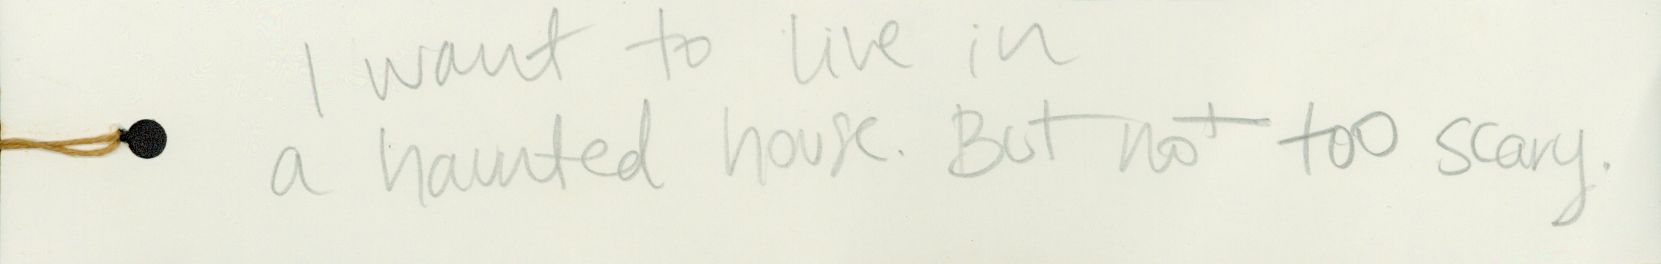 I want to live in
a haunted house. But not too scary.